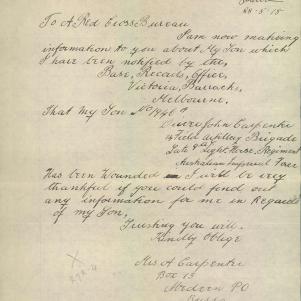 28-5-18
To A Red Cross Bureau
I am now making
information to you about My Son which
I have been notified by the,
Base, Records, Office,
Victoria, Barracks,
Melbourne.
That My Son No
John Carpenter
Field Artillery Brigade
Late 9th Light Horse, Regiment
Australian Imperial Force
Has been Wounded I will be very
thankful if you could find out
any information for me in Regards
of my Son,
Trusting you will.
Kindly Oblige
Mrs A Carpenter
Box 13
P.O